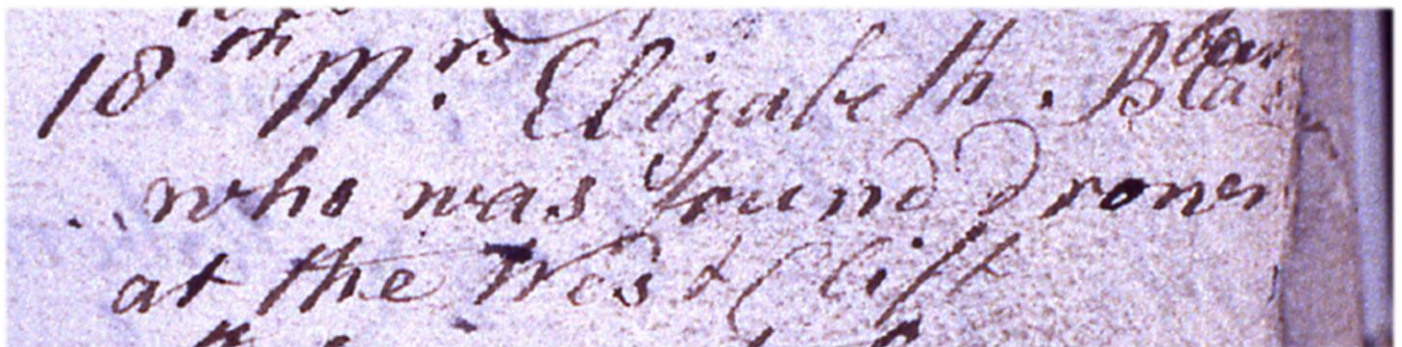 18th Mrs. Elizabeth.
who was found Droner
at the West Clift